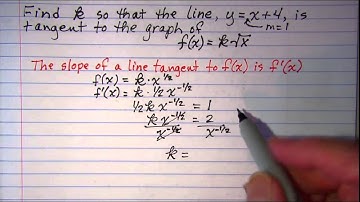 Find k so that the line, y = x + 4, is
m = 1
tangent to the graph of
f(x) = k√x
The slope of a line tangent to f(x) is f'(x)
f(x) = k · x^1/2
f'(x) = k · 1/2 x^-1/2
1/2 k x^-1/2 = 1
k x^-1/2 = 2
x^-1/2 x^-1/2
k =